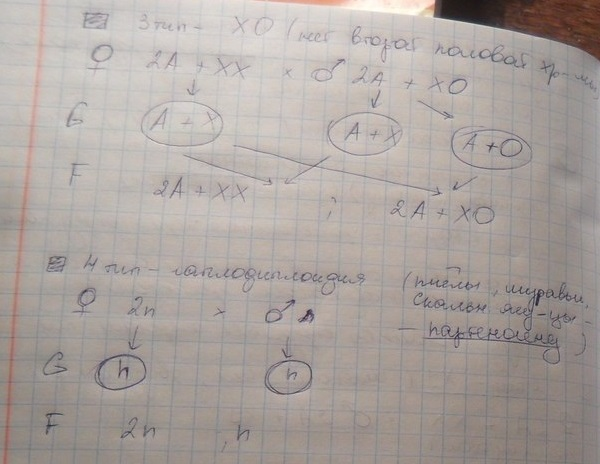 3 тип - XO (нет второй половой хр-мы)
♀ 2A + XX × ♂ 2A + XO
G A + X A + X A + O
F 2A + XX ; 2A + XO
4 тип - гаплодиплоидия (пчёлы, муравьи,
♀ 2n × ♂ n скальн ящ-цы -
- партеногенез)
G n n
F 2n , n